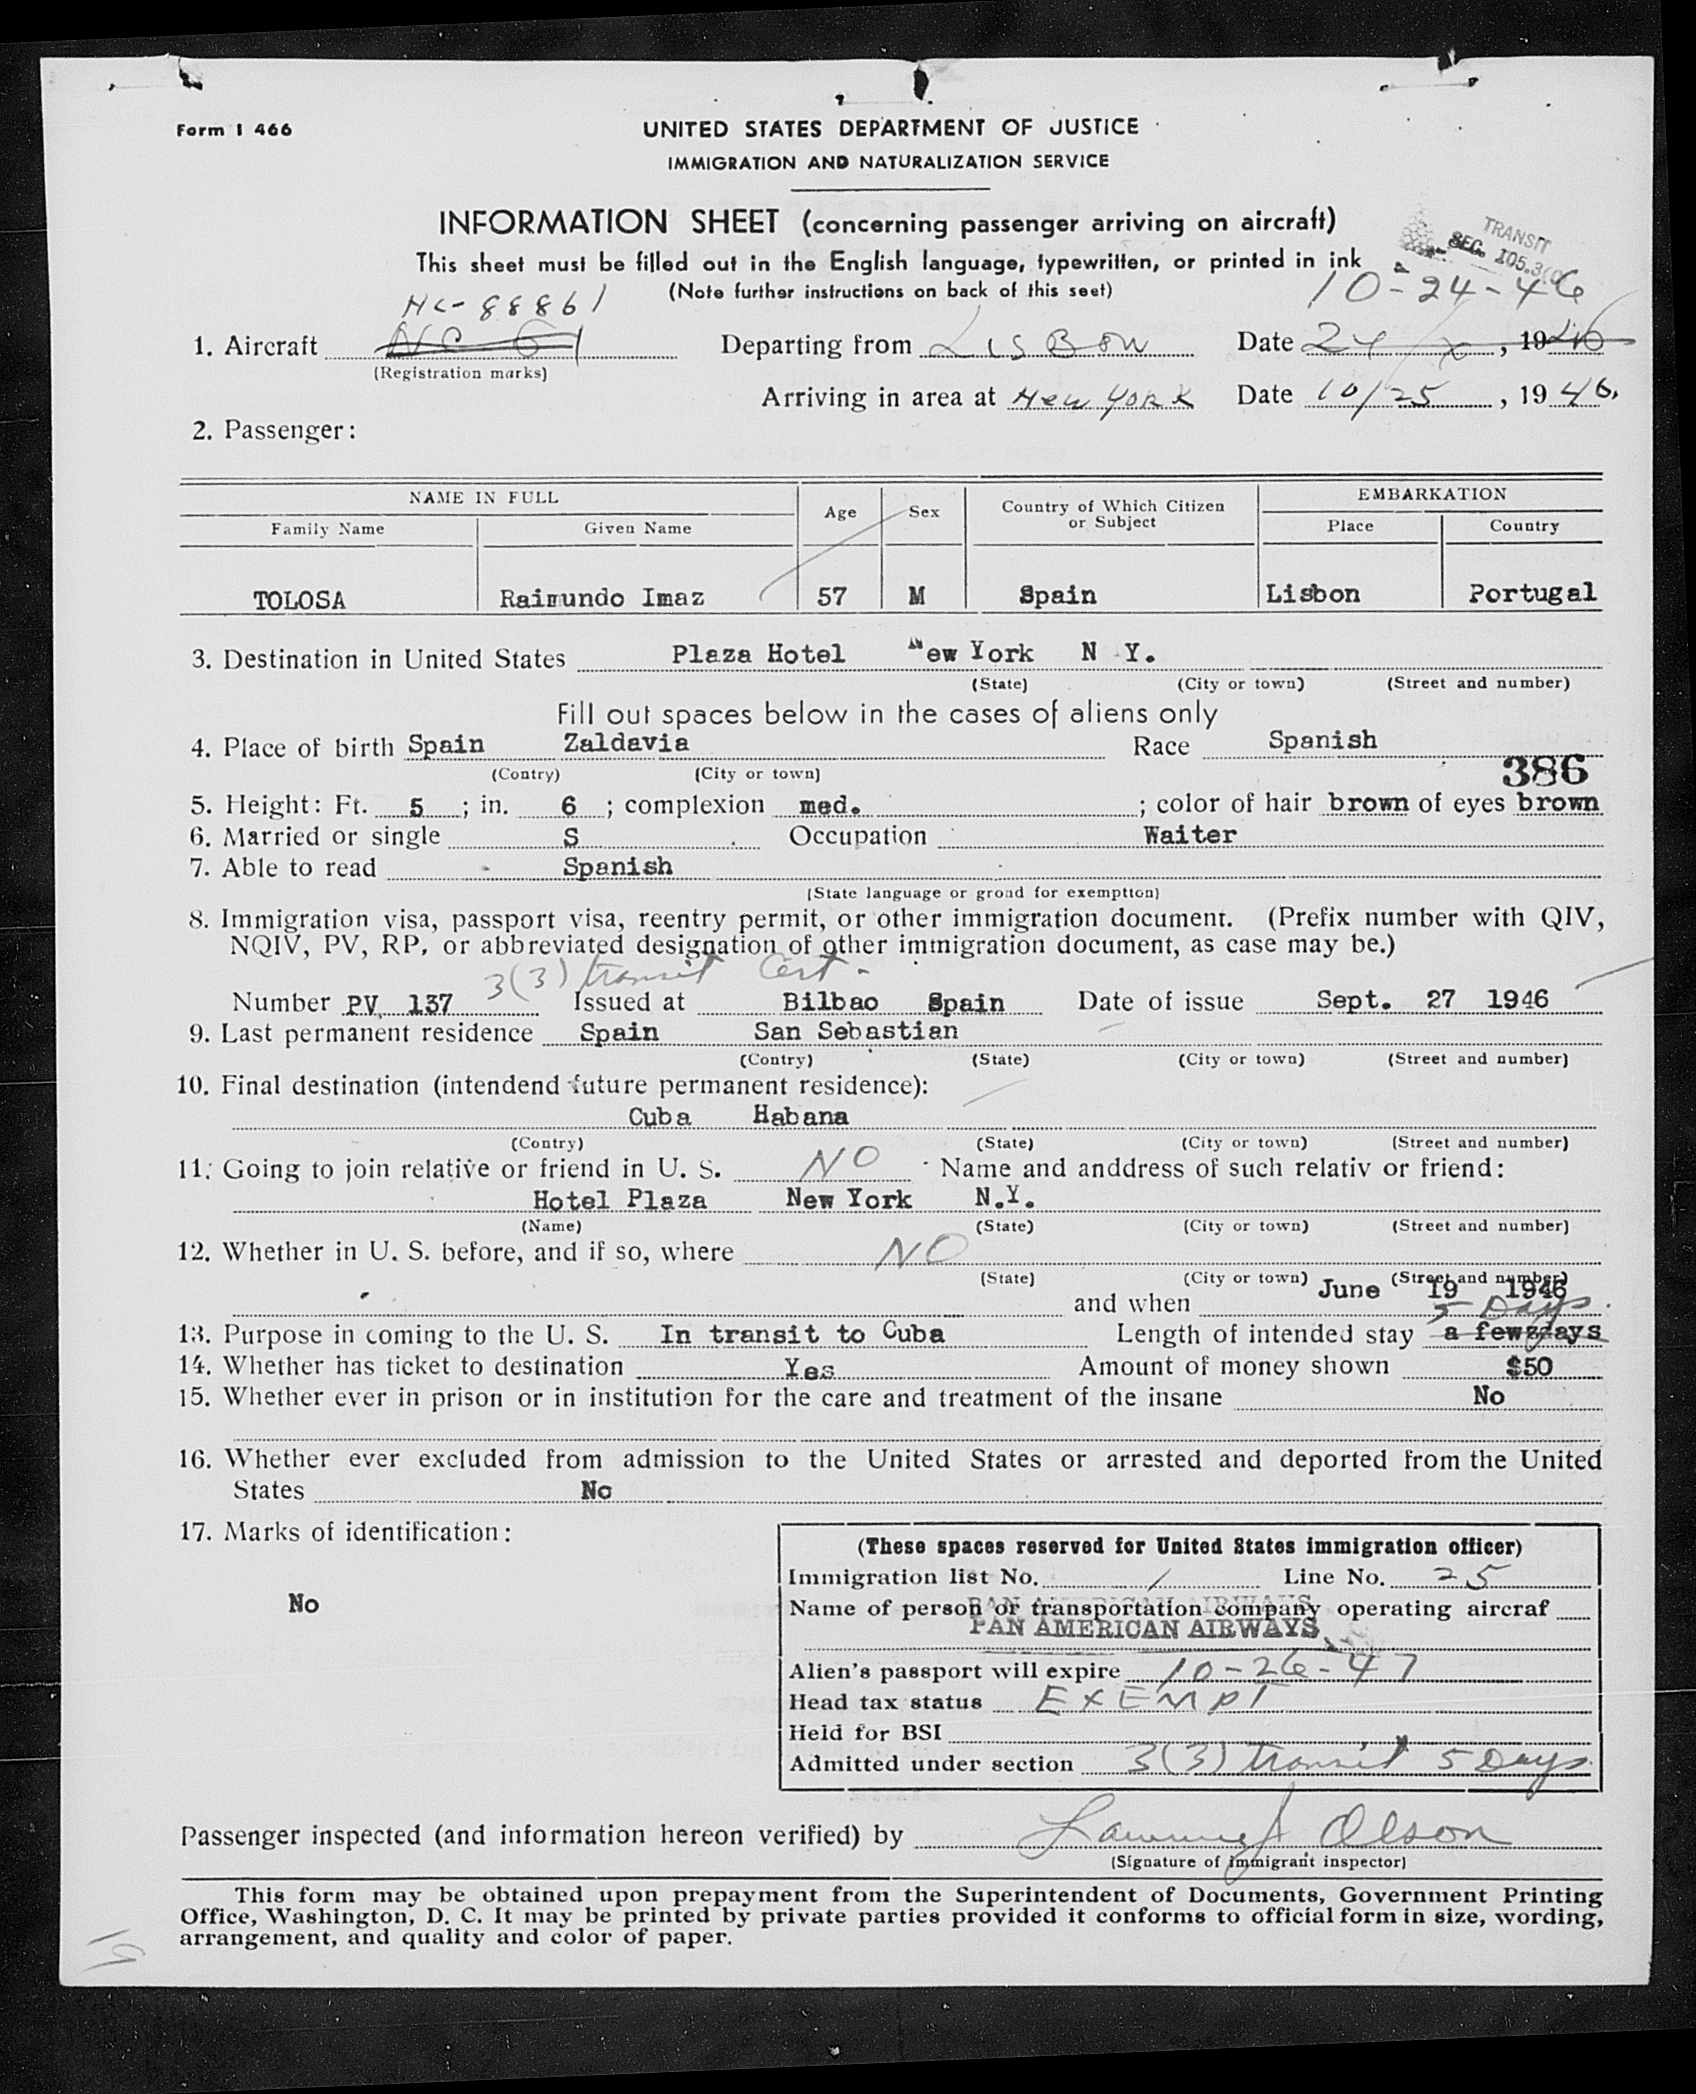 Form I 466
UNITED STATES DEPARTMENT OF JUSTICE
IMMIGRATION AND NATURALIZATION SERVICE
INFORMATION SHEET (concerning passenger arriving on aircraft)
This sheet must be filled out in the English language, typewritten, or printed in ink
(Note further instructions on back of this seet)
TRANSIT
SEC. 105.3
10-24-46
NC-88861
1. Aircraft Departing from LISBON Date 24 X, 1946
(Registration marks)
Arriving in area at New York Date 10/25, 1946,
2. Passenger:
NAME IN FULL Age Sex Country of Which Citizen or Subject EMBARKATION
Family Name Given Name Place Country
TOLOSA Raimundo Imaz 57 M Spain Lisbon Portugal
3. Destination in United States Plaza Hotel New York N Y.
(State) (City or town) (Street and number)
Fill out spaces below in the cases of aliens only
4. Place of birth Spain Zaldavia Race Spanish
(Contry) (City or town)
386
5. Height: Ft. 5; in. 6; complexion med.; color of hair brown of eyes brown
6. Married or single S Occupation Waiter
7. Able to read Spanish
(State language or groud for exemption)
8. Immigration visa, passport visa, reentry permit, or other immigration document. (Prefix number with QIV,
NQIV, PV, RP, or abbreviated designation of other immigration document, as case may be.)
3(3) transit Cert-
Number PV 137 Issued at Bilbao Spain Date of issue Sept. 27 1946
9. Last permanent residence Spain San Sebastian
(Contry) (State) (City or town) (Street and number)
10. Final destination (intendend future permanent residence):
Cuba Habana
(Contry) (State) (City or town) (Street and number)
11. Going to join relative or friend in U. S. NO Name and anddress of such relativ or friend:
Hotel Plaza New York N.Y.
(Name) (State) (City or town) (Street and number)
12. Whether in U. S. before, and if so, where NO
(State) (City or town) (Street and number)
and when June 19 1946
5 Days
13. Purpose in coming to the U. S. In transit to Cuba Length of intended stay a few days
14. Whether has ticket to destination Yes Amount of money shown $50
15. Whether ever in prison or in institution for the care and treatment of the insane No
16. Whether ever excluded from admission to the United States or arrested and deported from the United
States No
17. Marks of identification:
No
(These spaces reserved for United States immigration officer)
Immigration list No. 1 Line No. 25
Name of person or transportation company operating aircraf
PAN AMERICAN AIRWAYS
Alien's passport will expire 10-26-47
Head tax status EXEMPT
Held for BSI
Admitted under section 3(3) transit 5 Days
Passenger inspected (and information hereon verified) by Olson
(Signature of immigrant inspector)
This form may be obtained upon prepayment from the Superintendent of Documents, Government Printing
Office, Washington, D. C. It may be printed by private parties provided it conforms to official form in size, wording,
arrangement, and quality and color of paper.